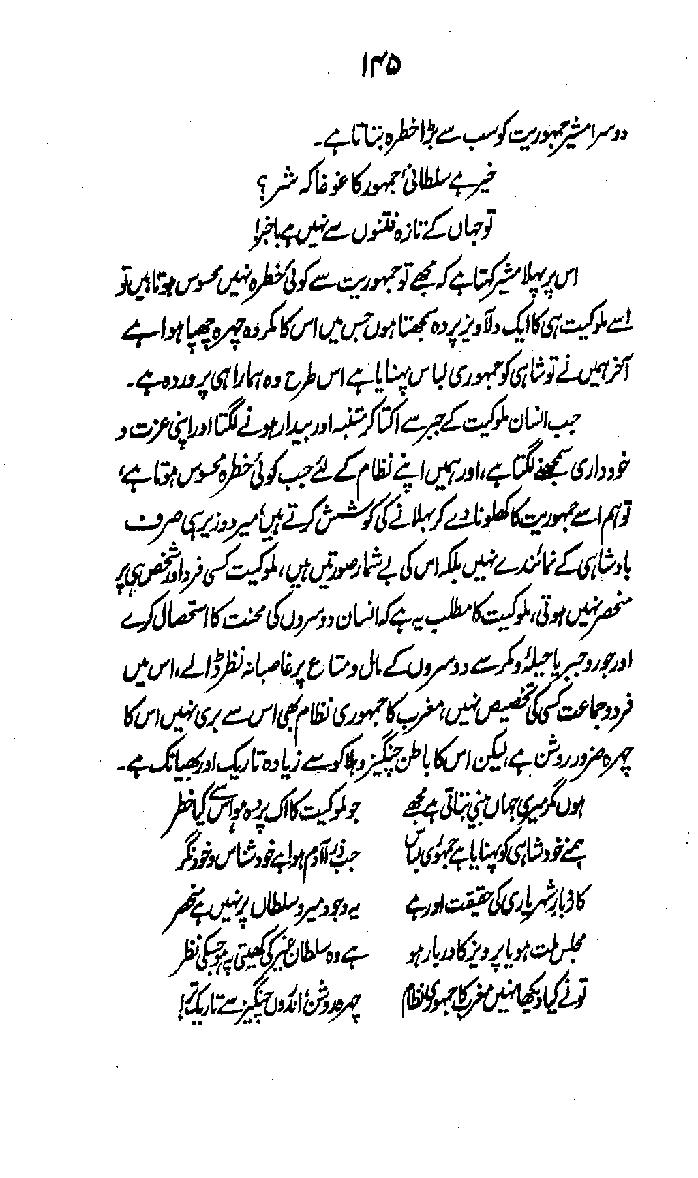 ۱۴۵
دوسرا مشیر جمہوریت کو سب سے بڑا خطرہ بتاتا ہے۔
خیر ہے سلطانیٔ جمہور کا غوغا کہ شر؟
تو جہاں کے تازہ فتنوں سے نہیں ہے باخبر!
اس پر پہلا مشیر کہتا ہے کہ مجھے تو جمہوریت سے کوئی خطرہ نہیں محسوس ہوتا میں تو
اسے ملوکیت ہی کا ایک دلآویز پردہ سمجھتا ہوں جس میں اس کا مکروہ چہرہ چھپا ہوا ہے
آخر ہمیں نے تو شاہی کو جمہوری لباس پہنایا ہے اس طرح وہ ہمارا ہی پروردہ ہے۔
جب انسان ملوکیت کے جبر سے اکتا کر متنبہ اور بیدار ہونے لگتا اور اپنی عزت و
خودداری سمجھنے لگتا ہے، اور ہمیں اپنے نظام کے لئے جب کوئی خطرہ محسوس ہوتا ہے،
تو ہم اسے جمہوریت کا کھلونا دے کر بہلانے کی کوشش کرتے ہیں، میر و وزیر ہی صرف
بادشاہی کے نمائندے نہیں بلکہ اس کی بے شمار صورتیں ہیں، ملوکیت کسی فرد اور شخص ہی پر
منحصر نہیں ہوتی، ملوکیت کا مطلب یہ ہے کہ انسان دوسروں کی محنت کا استحصال کرے
اور جور و جبر یا حیلہ و مکر سے دوسروں کے مال و متاع پر غاصبانہ نظر ڈالے، اس میں
فرد و جماعت کسی کی تخصیص نہیں، مغرب کا جمہوری نظام بھی اس سے بری نہیں اس کا
چہرہ ضرور روشن ہے، لیکن اس کا باطن چنگیز و ہلاکو سے زیادہ تاریک اور بھیانک ہے۔
ہوں مگر میری جہاں بینی بتاتی ہے مجھے جو ملوکیت کا اک پردہ ہو اس سے کیا خطر
ہم نے خود شاہی کو پہنایا ہے جمہوری لباس جب ذرا آدم ہوا ہے خود شناس و خود نگر
کاروبار شہریاری کی حقیقت اور ہے یہ وجود میر و سلطاں پر نہیں ہے منحصر
مجلس ملت ہو یا پرویز کا دربار ہو ہے وہ سلطان غیر کی کھیتی پہ ہو جسکی نظر
تو نے کیا دیکھا نہیں مغرب کا جمہوری نظام چہرہ روشن، اندروں چنگیز سے تاریک تر!